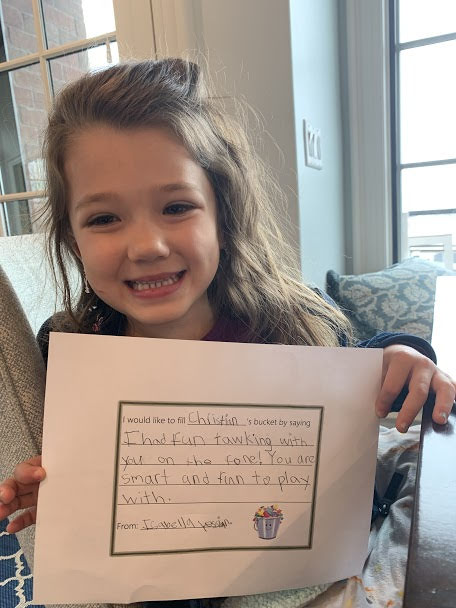 I would like to fill Christin 's bucket by saying
I had fun tawking with
you on the fone! You are
smart and finn to play
with.
From: Isabella